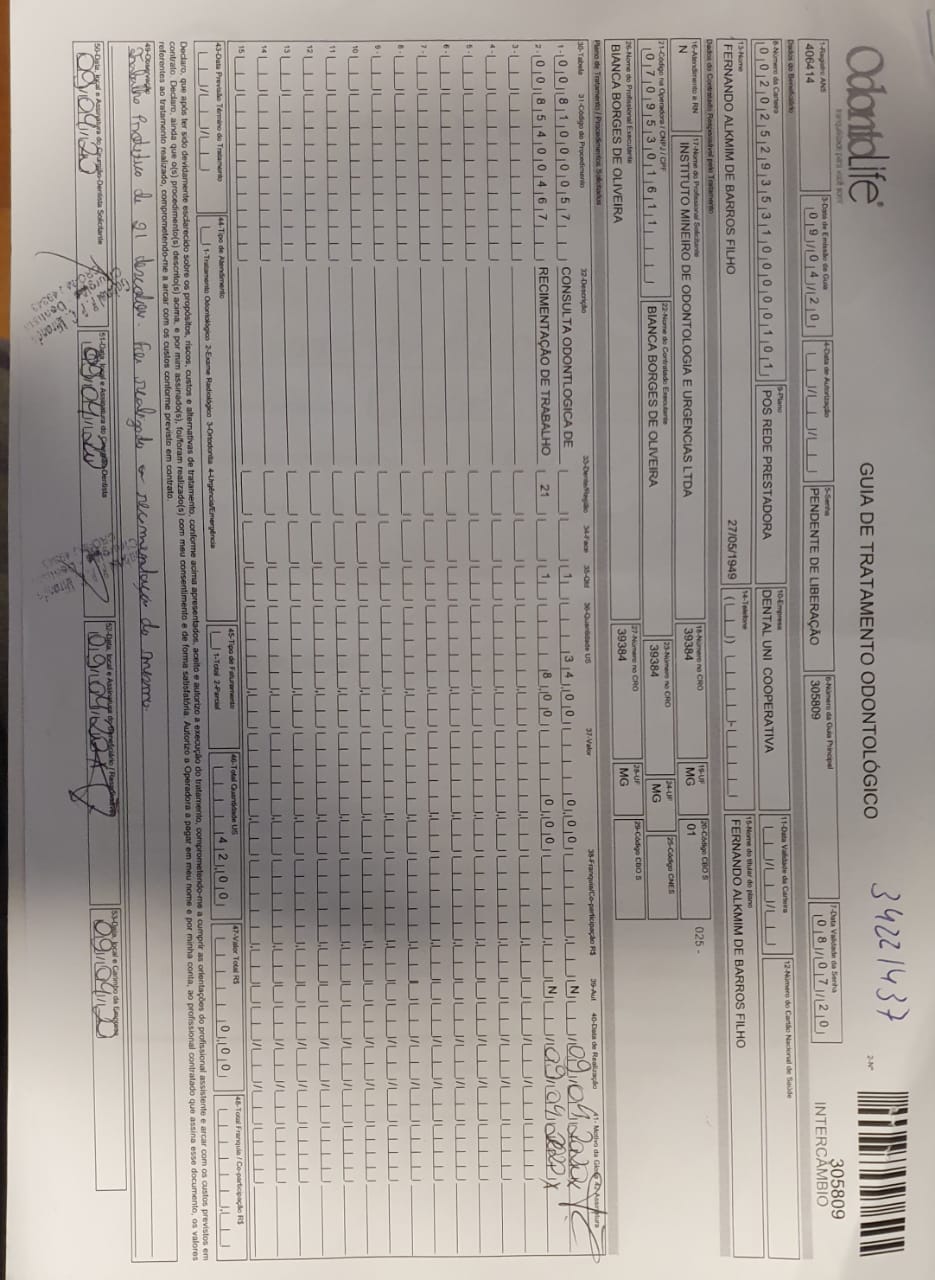 odontolife®
GUIA DE TRATAMENTO ODONTOLÓGICO
34221437
2-Nº
305809
INTERCÂMBIO
1-Registro ANS
406414
3-Data de Emissão da Guia
09/04/20
4-Data de Autorização
5-Senha
PENDENTE DE LIBERAÇÃO
6-Número da Guia Principal
305809
7-Data Validade da Senha
08/07/20
Dados do Beneficiário
8-Número da Carteira
00202529353100000101
9-Plano
POS REDE PRESTADORA
10-Empresa
DENTAL UNI COOPERATIVA
11-Data Validade da Carteira
12-Número do Cartão Nacional de Saúde
13-Nome
FERNANDO ALKMIM DE BARROS FILHO
27/05/1949
14-Telefone
15-Nome do titular do plano
FERNANDO ALKMIM DE BARROS FILHO
Dados do Contratado Responsável pelo Tratamento
16-Atendimento a RN
N
17-Nome do Profissional Solicitante
INSTITUTO MINEIRO DE ODONTOLOGIA E URGENCIAS LTDA
18-Número no CRO
39384
19-UF
MG
20-Código CBO S
01
025 -
21-Código na Operadora / CNPJ / CPF
07095301611
22-Nome do Contratado Executante
BIANCA BORGES DE OLIVEIRA
23-Número no CRO
39384
24-UF
MG
25-Código CNES
26-Nome do Profissional Executante
BIANCA BORGES DE OLIVEIRA
27-Número no CRO
39384
28-UF
MG
29-Código CBO S
Plano de Tratamento / Procedimentos Solicitados
30-Tabela 31-Código do Procedimento 32-Descrição 33-Dente/Região 34-Face 35-Qtd 36-Quantidade US 37-Valor 38-Franquia/Co-participação R$ 39-Aut 40-Data de Realização 41- Motivo da Glosa 42-Assinatura
1 - 00 81000057 CONSULTA ODONTLOGICA DE 1 34,00 0,00 N 09/04/2020
2 - 00 85400467 RECIMENTAÇÃO DE TRABALHO 21 1 8,00 0,00 N 09/04/2020
3 -
4 -
5 -
6 -
7 -
8 -
9 -
10
11
12
13
14
15
43-Data Previsão Término do Tratamento
44-Tipo de Atendimento
1-Tratamento Odontológico 2-Exame Radiológico 3-Ortodontia 4-Urgência/Emergência
45-Tipo de Faturamento
1-Total 2-Parcial
46-Total Quantidade US
42,00
47-Valor Total R$
0,00
48-Total Franquia / Co-participação R$
Declaro, que após ter sido devidamente esclarecido sobre os propósitos, riscos, custos e alternativas de tratamento, conforme acima apresentados, aceito e autorizo a execução do tratamento, comprometendo-me a cumprir as orientações do profissional assistente e arcar com os custos previstos em
contrato. Declaro, ainda que o(s) procedimento(s) descrito(s) acima, e por mim assinado(s), foi/foram realizado(s) com meu consentimento e de forma satisfatória. Autorizo a Operadora a pagar em meu nome e por minha conta, ao profissional contratado que assina esse documento, os valores
referentes ao tratamento realizado, comprometendo-me a arcar com os custos conforme previsto em contrato.
49-Observação
Trabalho Protético do 21 descolou. Foi realizado a recimentação do mesmo.
50-Data, local e Assinatura do Cirurgião-Dentista Solicitante
09/04/20
51-Data, local e Assinatura do Cirurgião-Dentista
09/04/20
52-Data, local e Assinatura do Beneficiário / Responsável
09/04/20
53-Data, local e Carimbo da Empresa
09/04/20